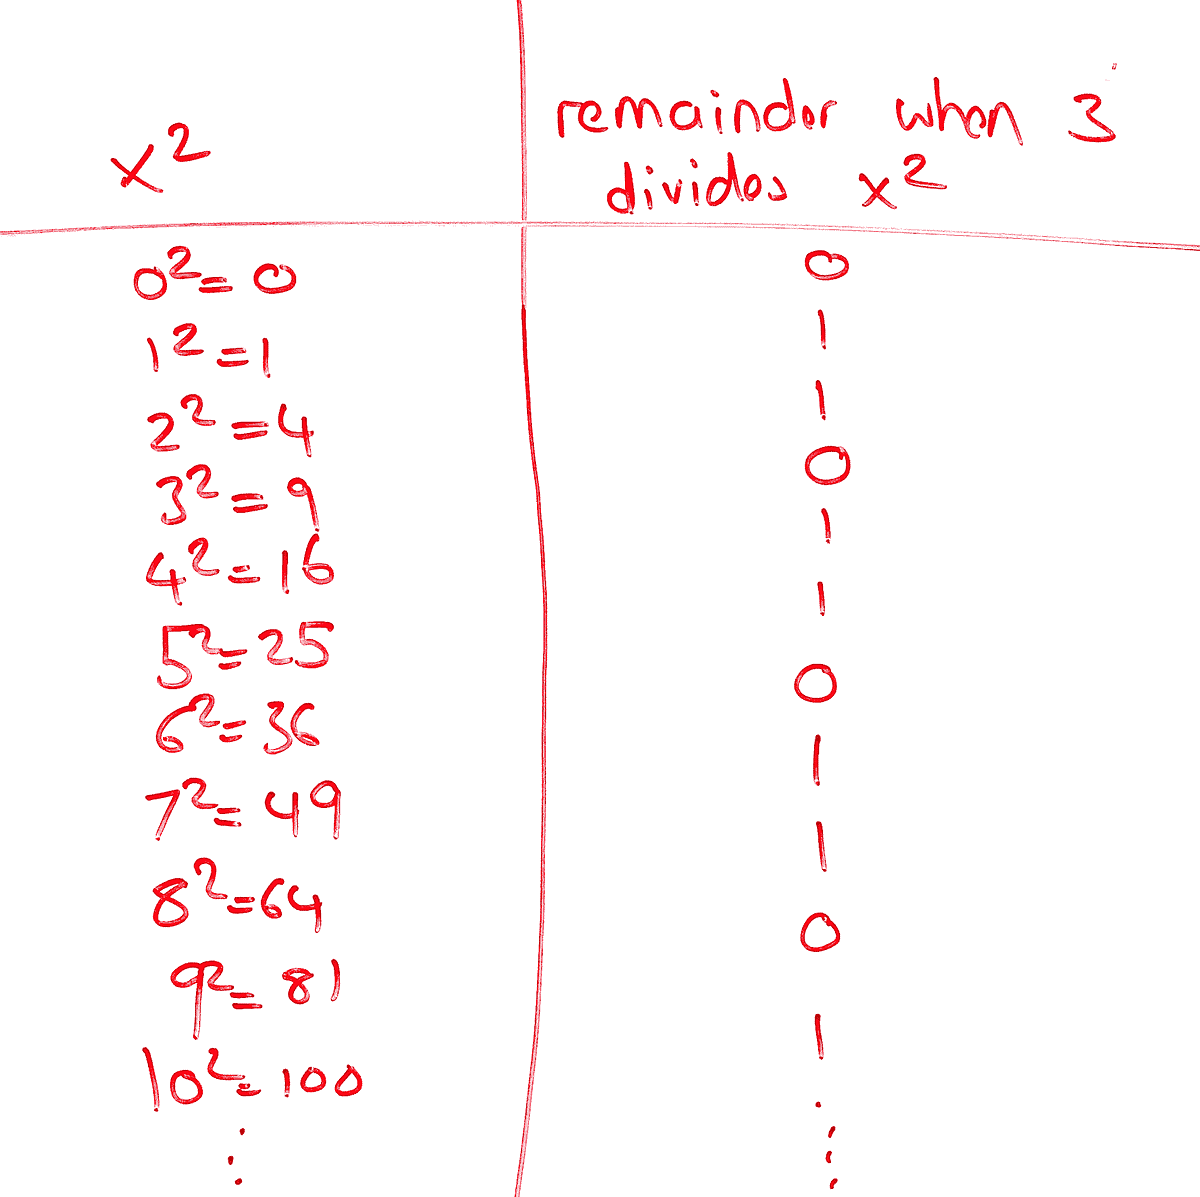 x² remainder when 3 divides x²
0² = 0 0
1² = 1 1
2² = 4 1
3² = 9 0
4² = 16 1
5² = 25 1
6² = 36 0
7² = 49 1
8² = 64 1
9² = 81 0
10² = 100 1
⋮ ⋮